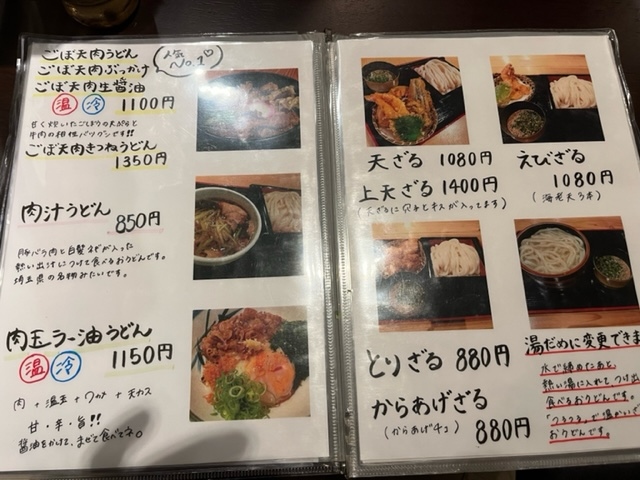 ごぼ天肉うどん
ごぼ天肉ぶっかけ
ごぼ天肉生醤油
人気
No.1
温 冷 1100円
甘く炊いたごぼうの天ぷらと
牛肉の相性バツグンです!!
ごぼ天肉きつねうどん
1350円
肉汁うどん
850円
豚バラ肉と自製ネギが入った
熱い出汁につけて食べるおうどんです。
埼玉県の名物みたいです。
肉玉ラー油うどん
温 冷 1150円
肉 + 温玉 + ワカメ + 天カス
甘・辛・旨!!
醤油をかけて、まぜて食べてネ。
天ざる 1080円
上天ざる 1400円
(天ざるに穴子とキスが入ってます)
えびざる
1080円
(海老天3本)
とりざる 880円
からあげざる
(からあげ4コ) 880円
湯だめに変更できま
水で締めたあと
熱い湯に入れて つけ出
食べるおうどんです。
「フチフチ」で温かい
おうどんです。